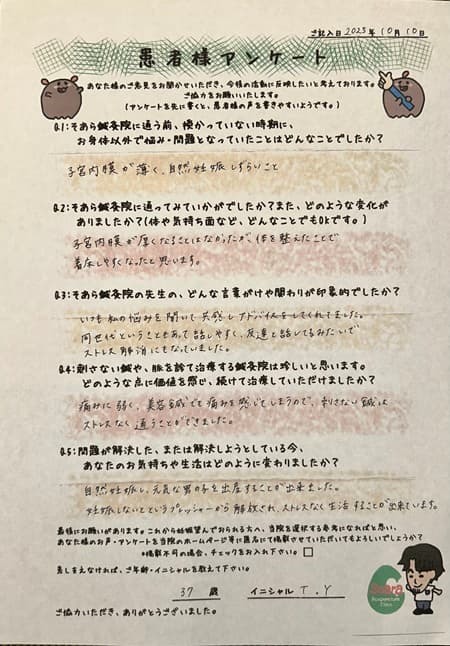 ご記入日 2025年 10月 10日
患者様アンケート
あなた様のご意見をお聞かせいただき、今後の活動に反映したいと考えております。
ご協力をお願いいたします。
(アンケートを先に書くと、患者様の声を書きやすいようです。)
Q.1:そあら鍼灸院に通う前、授かっていない時期に、
お身体以外で悩み・問題となっていたことはどんなことでしたか？
子宮内膜が薄く、自然妊娠しずらいこと
Q.2:そあら鍼灸院に通ってみていかがでしたか？また、どのような変化が
ありましたか？(体や気持ち面など、どんなことでもOKです。)
子宮内膜が厚くなることはなかったが、体を整えたことで
着床しやすくなったと思います。
Q.3:そあら鍼灸院の先生の、どんな言葉がけや関わりが印象的でしたか？
いつも私の悩みを聞いて共感しアドバイスをしてくれてました。
同世代ということもあって話しやすく、友達と話してるみたいで
ストレス解消にもなっていました。
Q.4:刺さない鍼や、脈を診て治療する鍼灸院は珍しいと思います。
どのような点に価値を感じ、続けて治療していただけましたか？
痛みに弱く、美容鍼でも痛みを感じてしまうので、刺さない鍼は
ストレスなく通うことができました。
Q.5:問題が解決した、または解決しようとしている今、
あなたのお気持ちや生活はどのように変わりましたか？
自然妊娠し、元気な男の子を出産することが出来ました。
妊娠しないとというプレッシャーから解放され、ストレスなく生活することが出来ています。
最後にお願いがあります。これから妊娠望んでおられる方へ、当院を選択する参考になればと思い、
あなた様のお声・アンケートを当院のホームページ等に匿名にて掲載させていただいてもよろしいでしょうか？
*掲載不可の場合、チェックをお入れ下さい。□
差しさえなければ、ご年齢・イニシャルを教えて下さい。
37 歳 イニシャル T.Y
ご協力いただき、ありがとうございました。
Soara
Acupuncture
Clinic